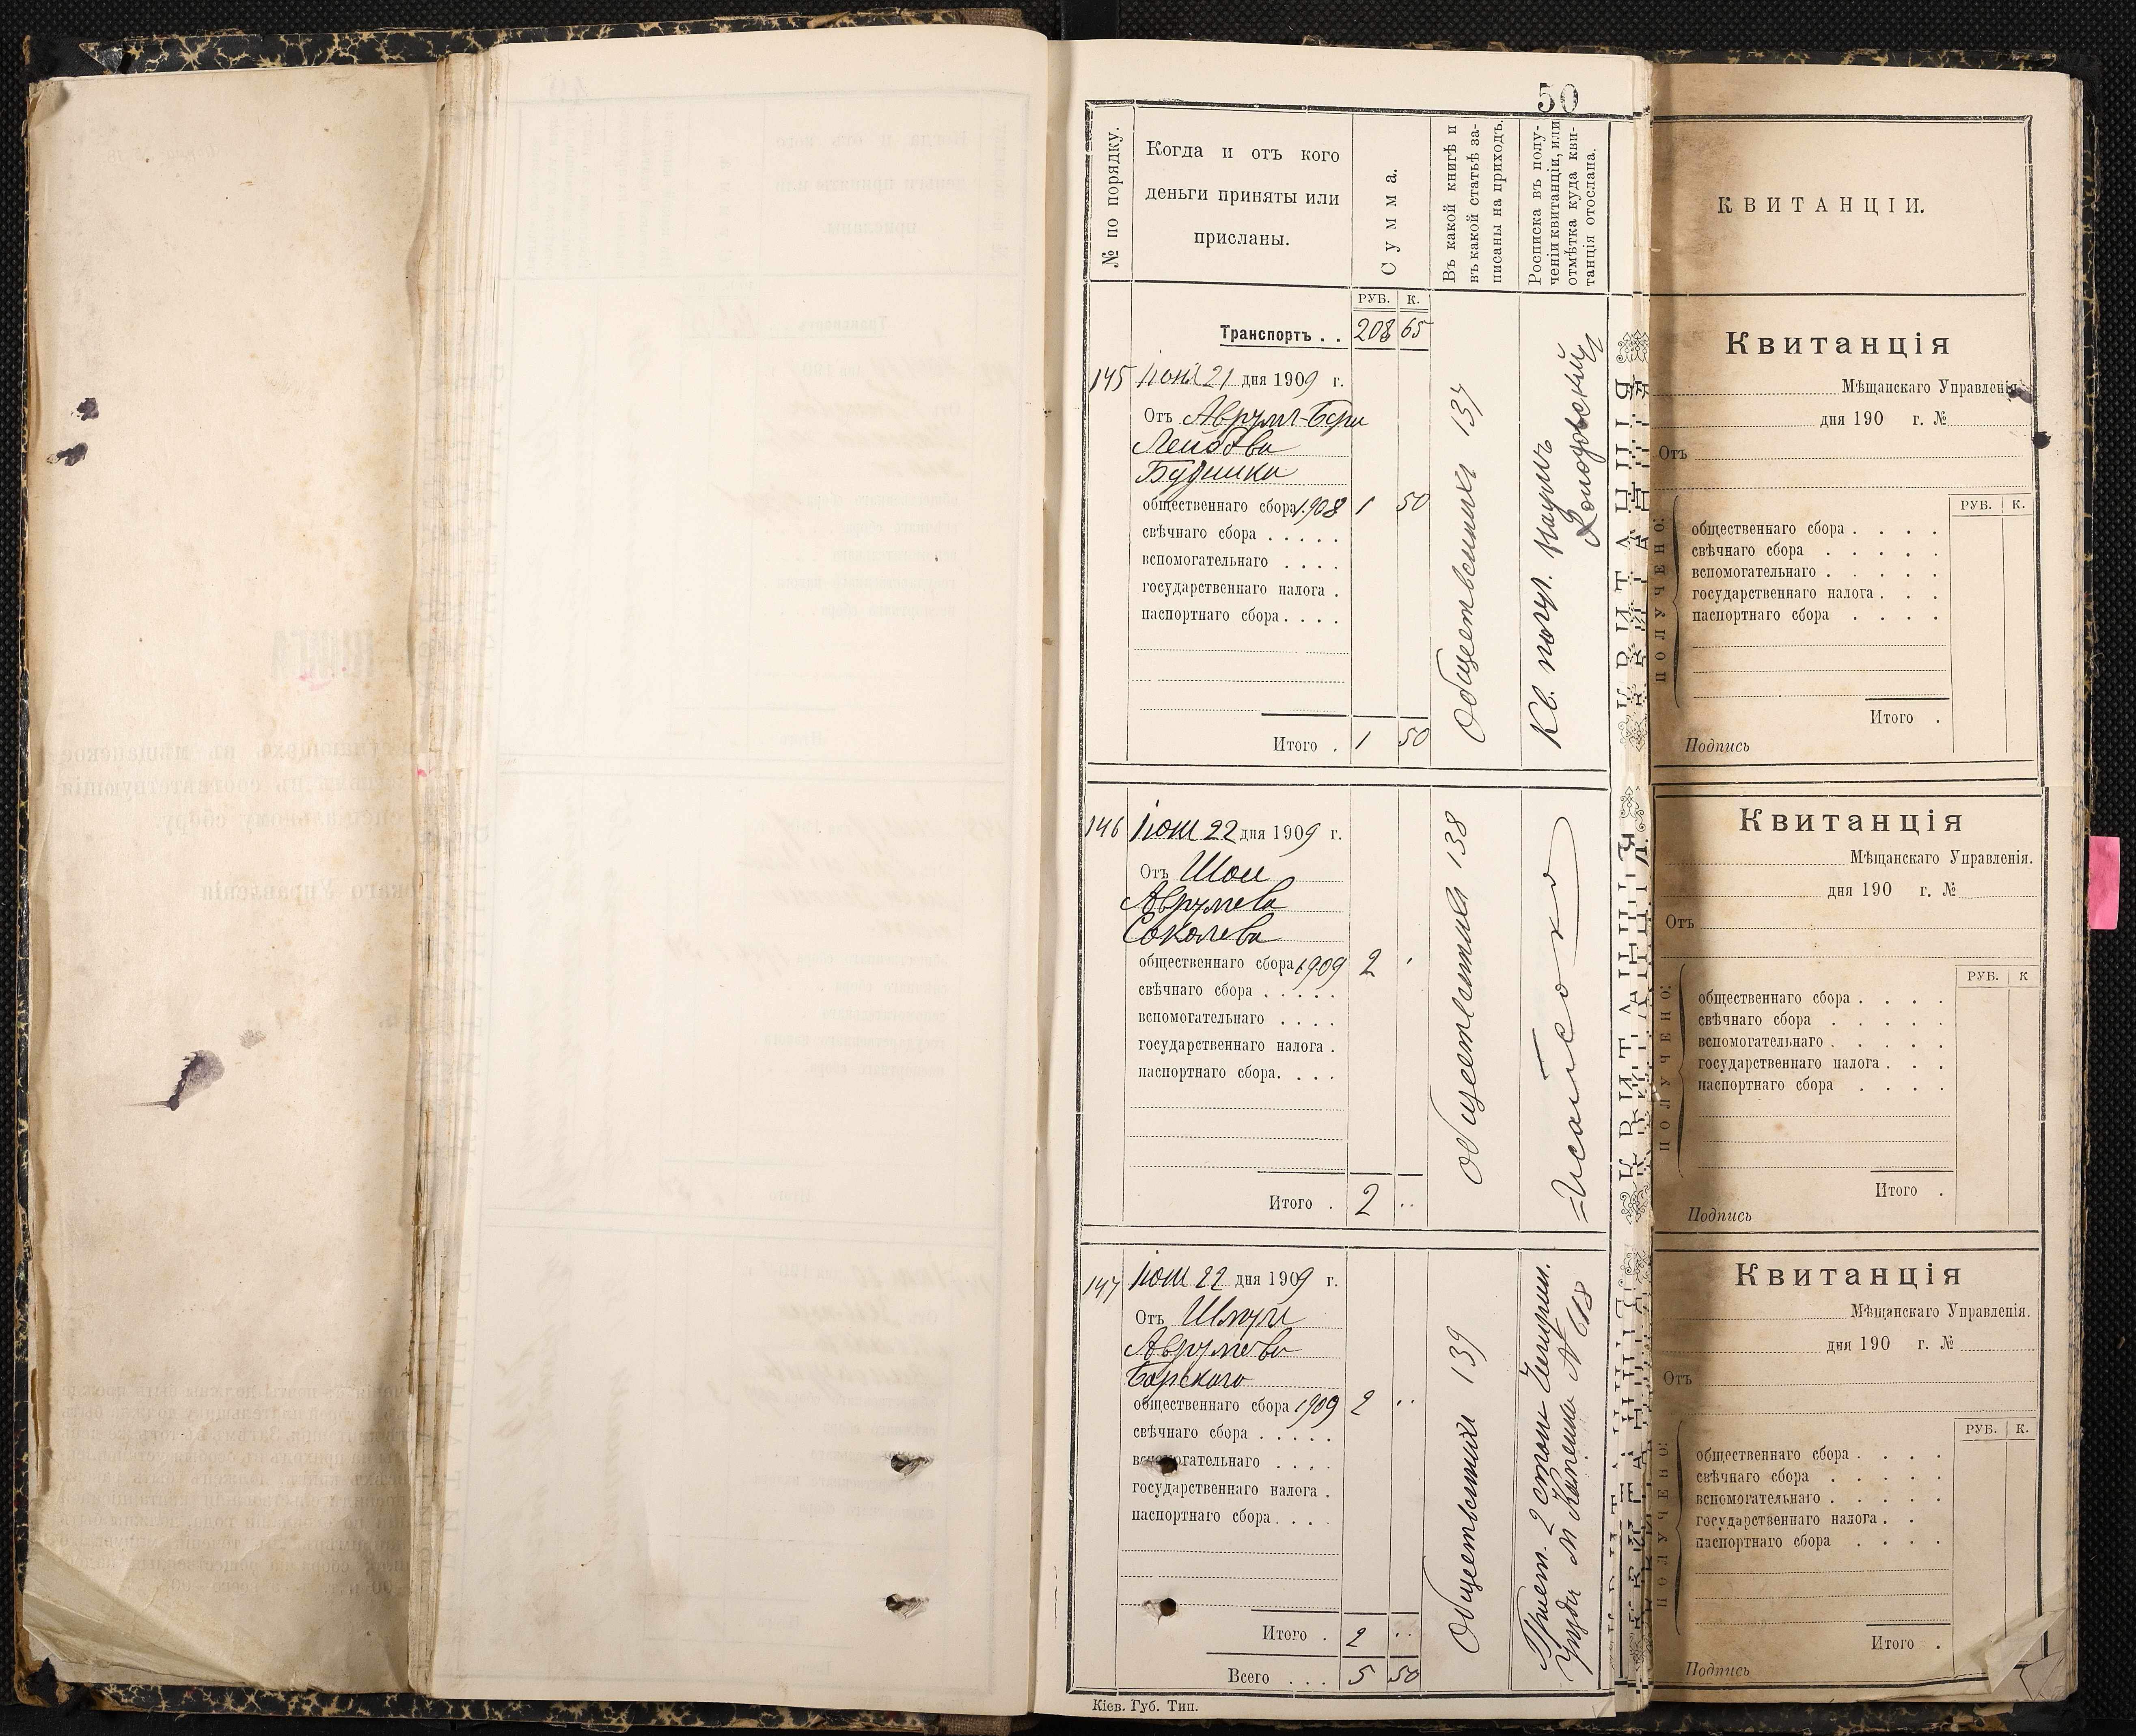 50
№ по порядку.
Когда и отъ кого
деньги приняты или
присланы.
Сумма.
Въ какой книгѣ и
въ какой статьѣ за-
писаны на приходъ.
Росписка въ полу-
ченіи квитанціи, или
отмѣтка куда кви-
танція отослана.
РУБ. К.
Транспортъ . . 208 65
145 Іюня 21 дня 1909 г.
Отъ Аврумъ-Бери
Лейбова
общественнаго сбора 1908 1 50
свѣчнаго сбора . . . . .
вспомогательнаго . . . .
государственнаго налога .
паспортнаго сбора . . . .
Итого . 1 50
Общественныхъ 137
Кв. получ.
КВИТАНЦІЯ
146 Іюня 22 дня 1909 г.
Отъ
Аврумева
Соколева
общественнаго сбора 1909 2
свѣчнаго сбора . . . . .
вспомогательнаго . . . .
государственнаго налога .
паспортнаго сбора. . . .
Итого . 2 ..
Общественныхъ 138
КВИТАНЦІЯ
147 Іюня 22 дня 1909 г.
Отъ Шмуля
Аврумева
Борского
общественнаго сбора 1909 2 ..
свѣчнаго сбора . . . . .
вспомогательнаго . . . .
государственнаго налога .
паспортнаго сбора . . . .
Итого . 2 ..
Всего . . . 5 50
Общественныхъ 139
2 стан. Чигирин.
м Каменка № 618
КВИТАНЦІЯ
Кіев. Губ. Тип.
КВИТАНЦІИ.
Квитанція
Мѣщанскаго Управленія
дня 190 г. №
Отъ
РУБ. К.
ПОЛУЧЕНО:
общественнаго сбора . . . .
свѣчнаго сбора . . . . .
вспомогательнаго . . . . .
государственнаго налога . . .
паспортнаго сбора . . . .
Итого .
Подпись
Квитанція
Мѣщанскаго Управленія.
дня 190 г. №
Отъ
РУБ. К
ПОЛУЧЕНО:
общественнаго сбора . . . .
свѣчнаго сбора . . . . .
вспомогательнаго . . . . .
государственнаго налога . . .
паспортнаго сбора . . . .
Итого .
Подпись
Квитанція
Мѣщанскаго Управленія.
дня 190 г. №
Отъ
РУБ. К.
ПОЛУЧЕНО:
общественнаго сбора . . . .
свѣчнаго сбора . . . . .
вспомогательнаго . . . . .
государственнаго налога . .
паспортнаго сбора . . . .
Итого .
Подпись